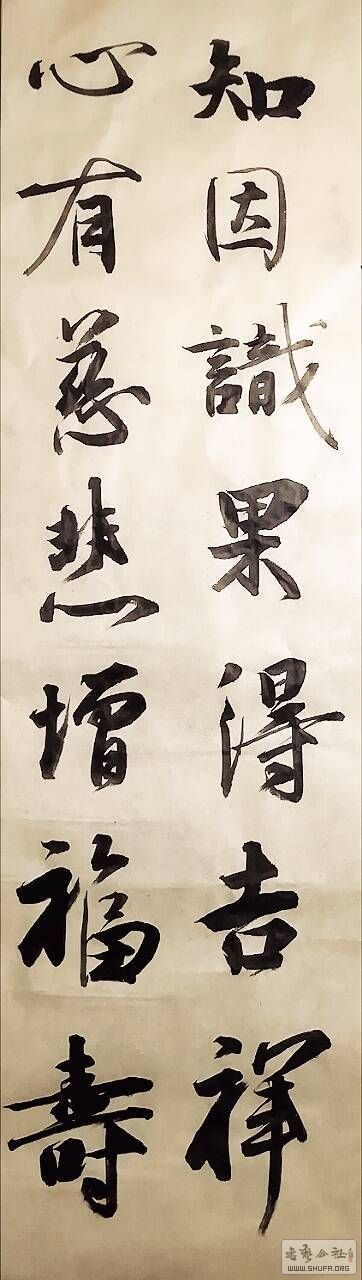 知因識果得吉祥
心有慈悲增福壽
書藝公社
WWW.SHUFA.ORG